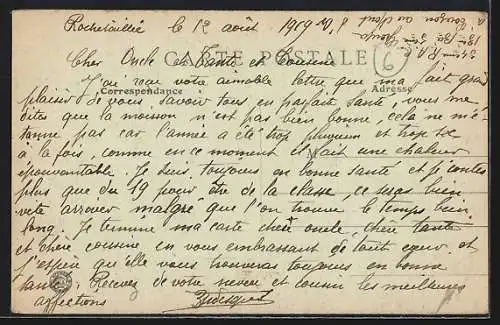 Rochetaillée le 12 août 1919
Cher Oncle et Tante et Cousine
CARTE POSTALE
Correspondance
Adresse
J'ai reçu votre aimable lettre que ma fait grand
plaisir de vous savoir tous en parfait santé, vous me
dites que la moison n'est pas bien bonne, cela ne m'é-
tonne pas car l'année a été trop pluvieux et trop sec
à la fois, comme en ce moment il fait une chaleur
épouvantable. Je suis toujours en bonne santé et je
plus que du 19 pour être de la classe, ce sera bien
vite arrover malgré que l'on trouve le temps bien
long. Je termine ma carte chère oncle, chère tante
et chère cousine en vous embrassant de tout cœur et
j'espère qu'elle vous trouveras toujours en bonne
santé. Recevez de votre neveu et cousin les meilleures
affections